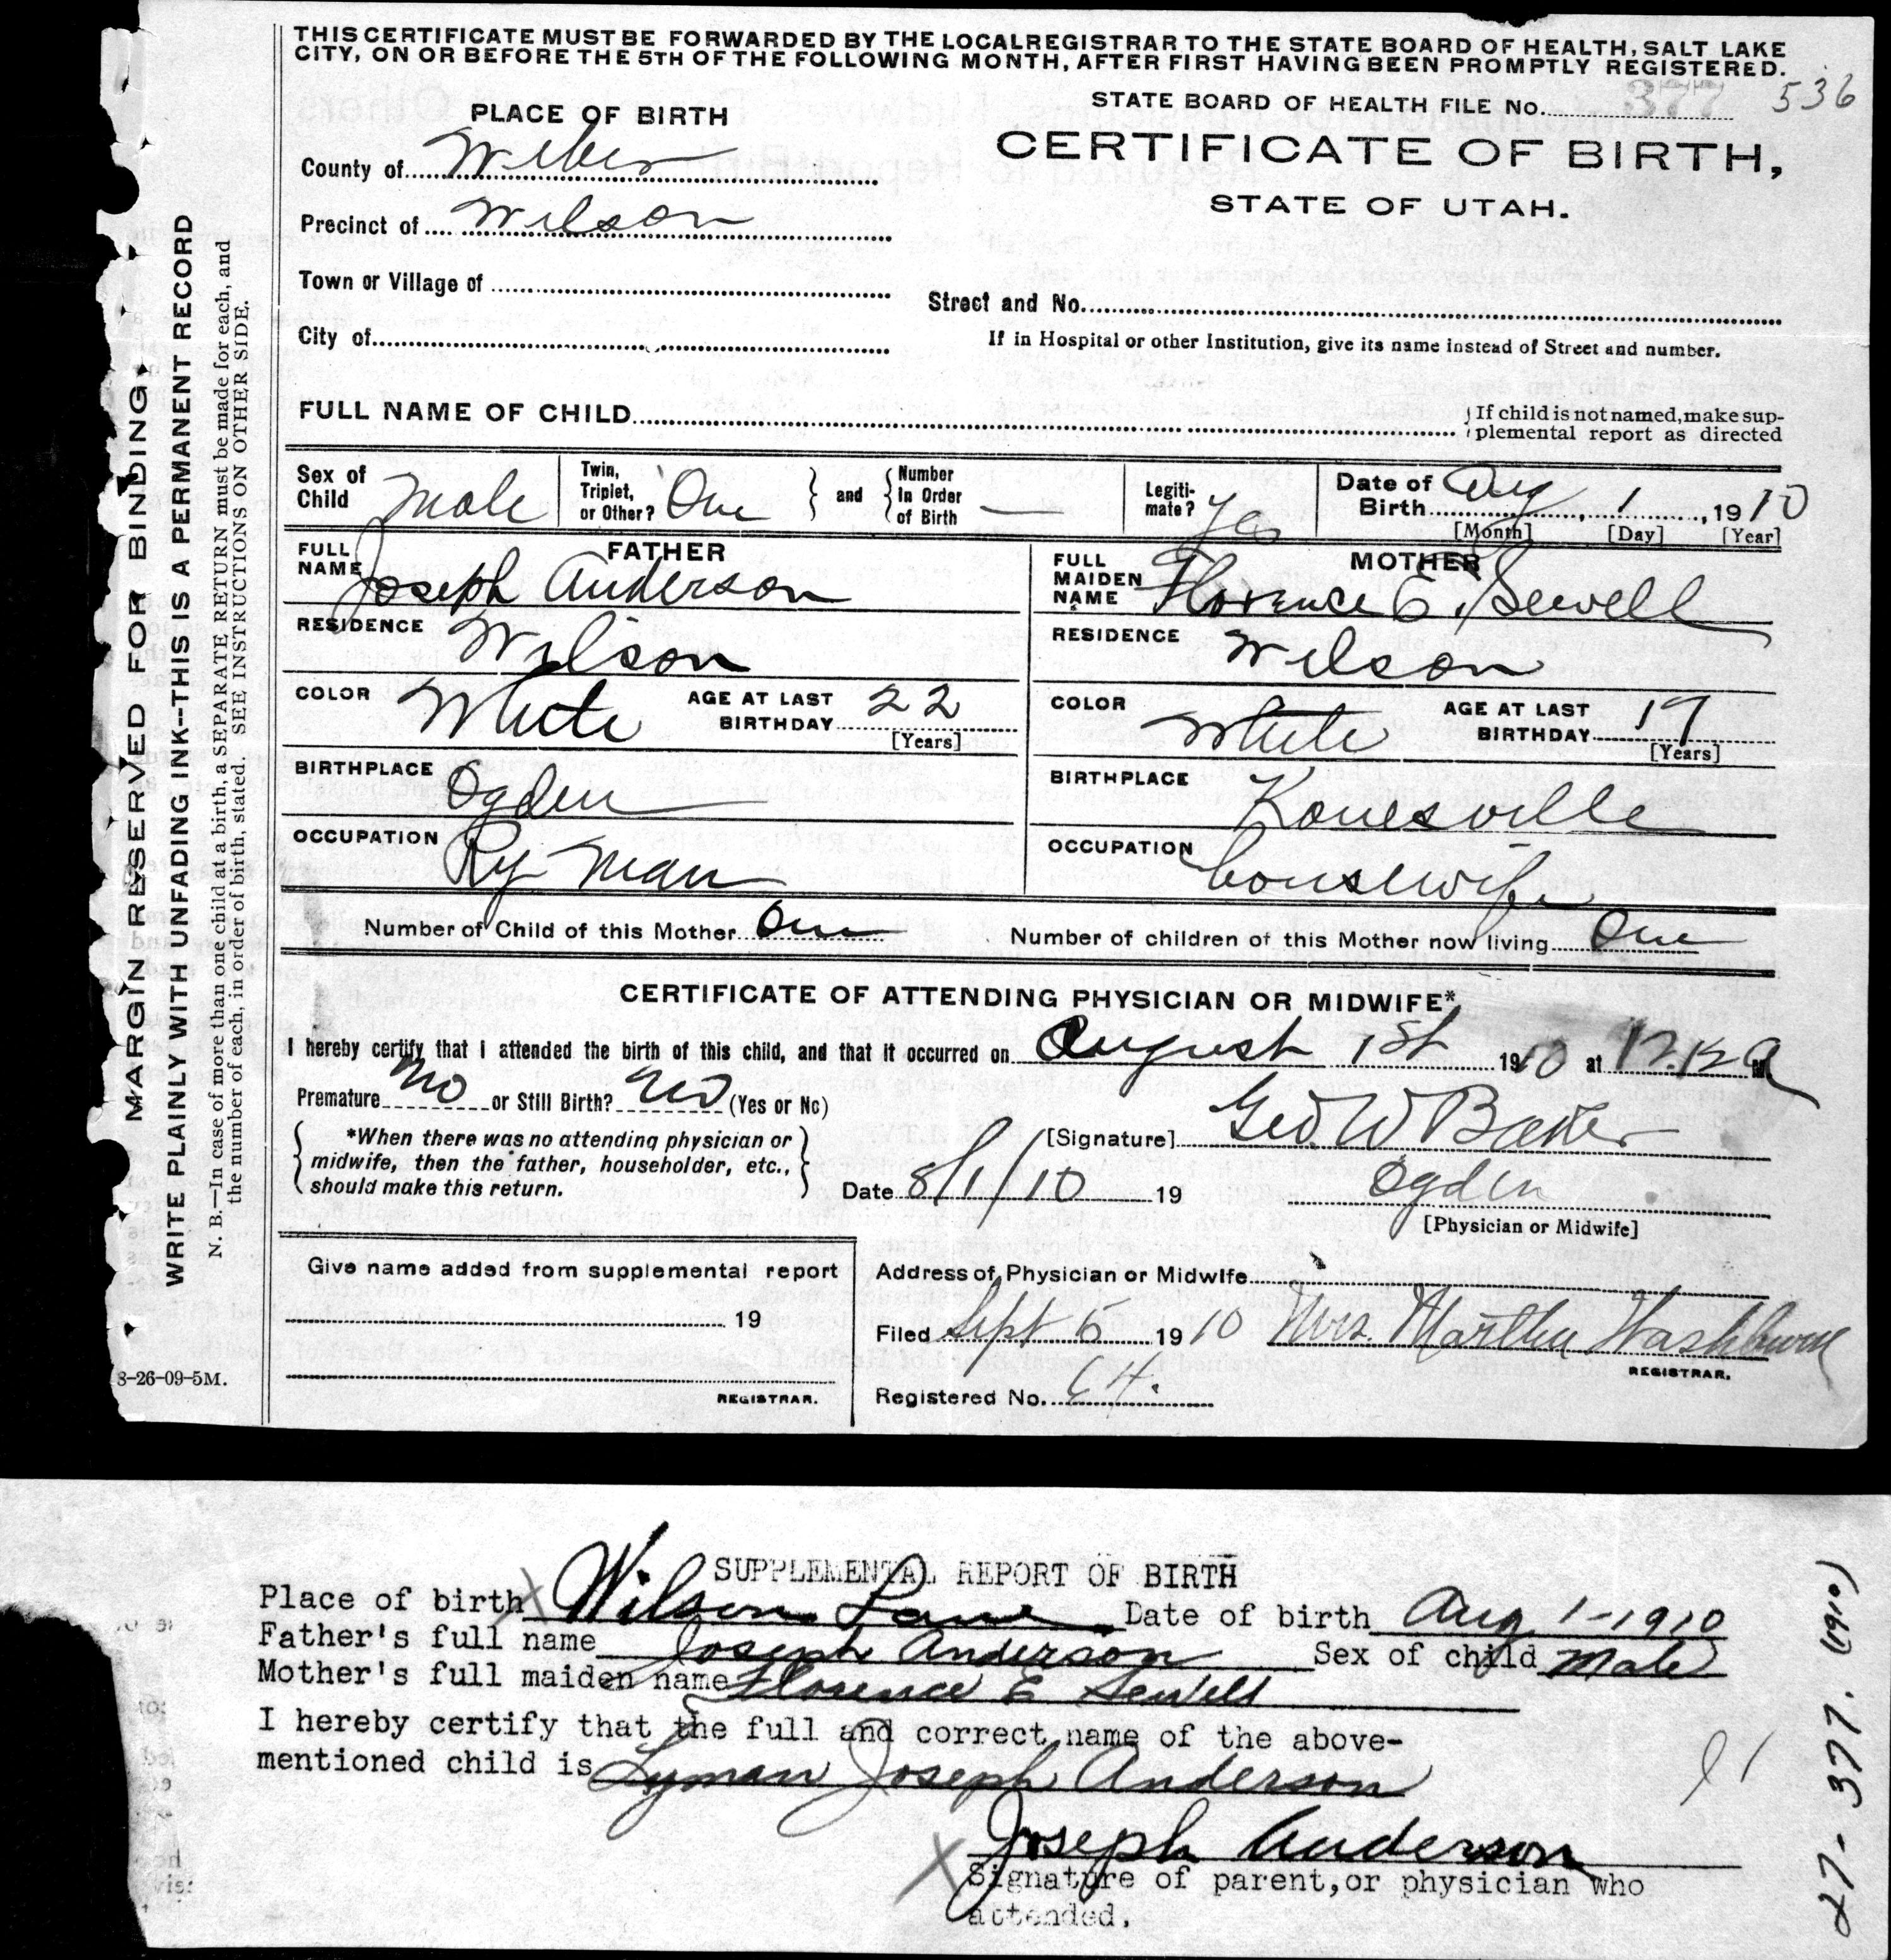 THIS CERTIFICATE MUST BE FORWARDED BY THE LOCAL REGISTRAR TO THE STATE BOARD OF HEALTH, SALT LAKE
CITY, ON OR BEFORE THE 5TH OF THE FOLLOWING MONTH, AFTER FIRST HAVING BEEN PROMPTLY REGISTERED.
STATE BOARD OF HEALTH FILE No. 377 536
PLACE OF BIRTH
CERTIFICATE OF BIRTH,
STATE OF UTAH.
County of Weber
Precinct of Wilson
Town or Village of
Street and No.
City of
If in Hospital or other Institution, give its name instead of Street and number.
FULL NAME OF CHILD
If child is not named, make sup-
plemental report as directed
Sex of Child Male
Twin, Triplet, or Other? One
and
Number In Order of Birth —
Legiti-mate? Yes
Date of Birth Aug, 1, 1910
[Month] [Day] [Year]
FATHER
FULL NAME Joseph Anderson
RESIDENCE Wilson
COLOR White AGE AT LAST BIRTHDAY 22
[Years]
BIRTHPLACE Ogden
OCCUPATION Ry Man
MOTHER
FULL MAIDEN NAME Florence E. Sewell
RESIDENCE Wilson
COLOR White AGE AT LAST BIRTHDAY 17
[Years]
BIRTHPLACE Kanesville
OCCUPATION housewife
Number of Child of this Mother One
Number of children of this Mother now living One
CERTIFICATE OF ATTENDING PHYSICIAN OR MIDWIFE*
I hereby certify that I attended the birth of this child, and that it occurred on August 1st 1910 at 12.12 a M.
Premature No or Still Birth? No (Yes or No)
*When there was no attending physician or
midwife, then the father, householder, etc.,
should make this return.
[Signature] Geo. W Baker
Date 8/1/10 19
Ogden
[Physician or Midwife]
Give name added from supplemental report
19
REGISTRAR.
Address of Physician or Midwife
Filed Sept 5 1910 Mrs. Martha Washburn
REGISTRAR.
Registered No. 64.
MARGIN RESERVED FOR BINDING.
WRITE PLAINLY WITH UNFADING INK--THIS IS A PERMANENT RECORD
N. B.—In case of more than one child at a birth, a SEPARATE RETURN must be made for each, and
the number of each, in order of birth, stated. SEE INSTRUCTIONS ON OTHER SIDE.
8-26-09-5M.
SUPPLEMENTAL REPORT OF BIRTH
Place of birth X Wilson Lane Date of birth Aug 1-1910
Father's full name Joseph Anderson Sex of child Male
Mother's full maiden name Florence E Sewell
I hereby certify that the full and correct name of the above-
mentioned child is Lyman Joseph Anderson
X Joseph Anderson
Signature of parent, or physician who
attended.
27-377. (1910)